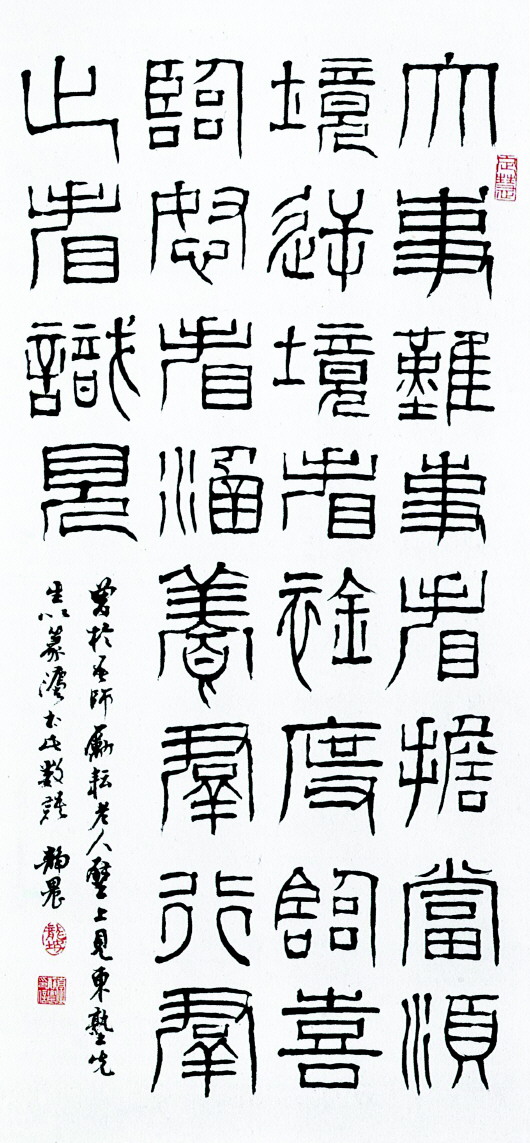 大事難事看擔當順
境逆境看襟度臨喜
臨怒看涵養羣行羣
止看識見
曾於吾師勵耘老人壁上見東塾先
生以篆灋書此數語 靜農